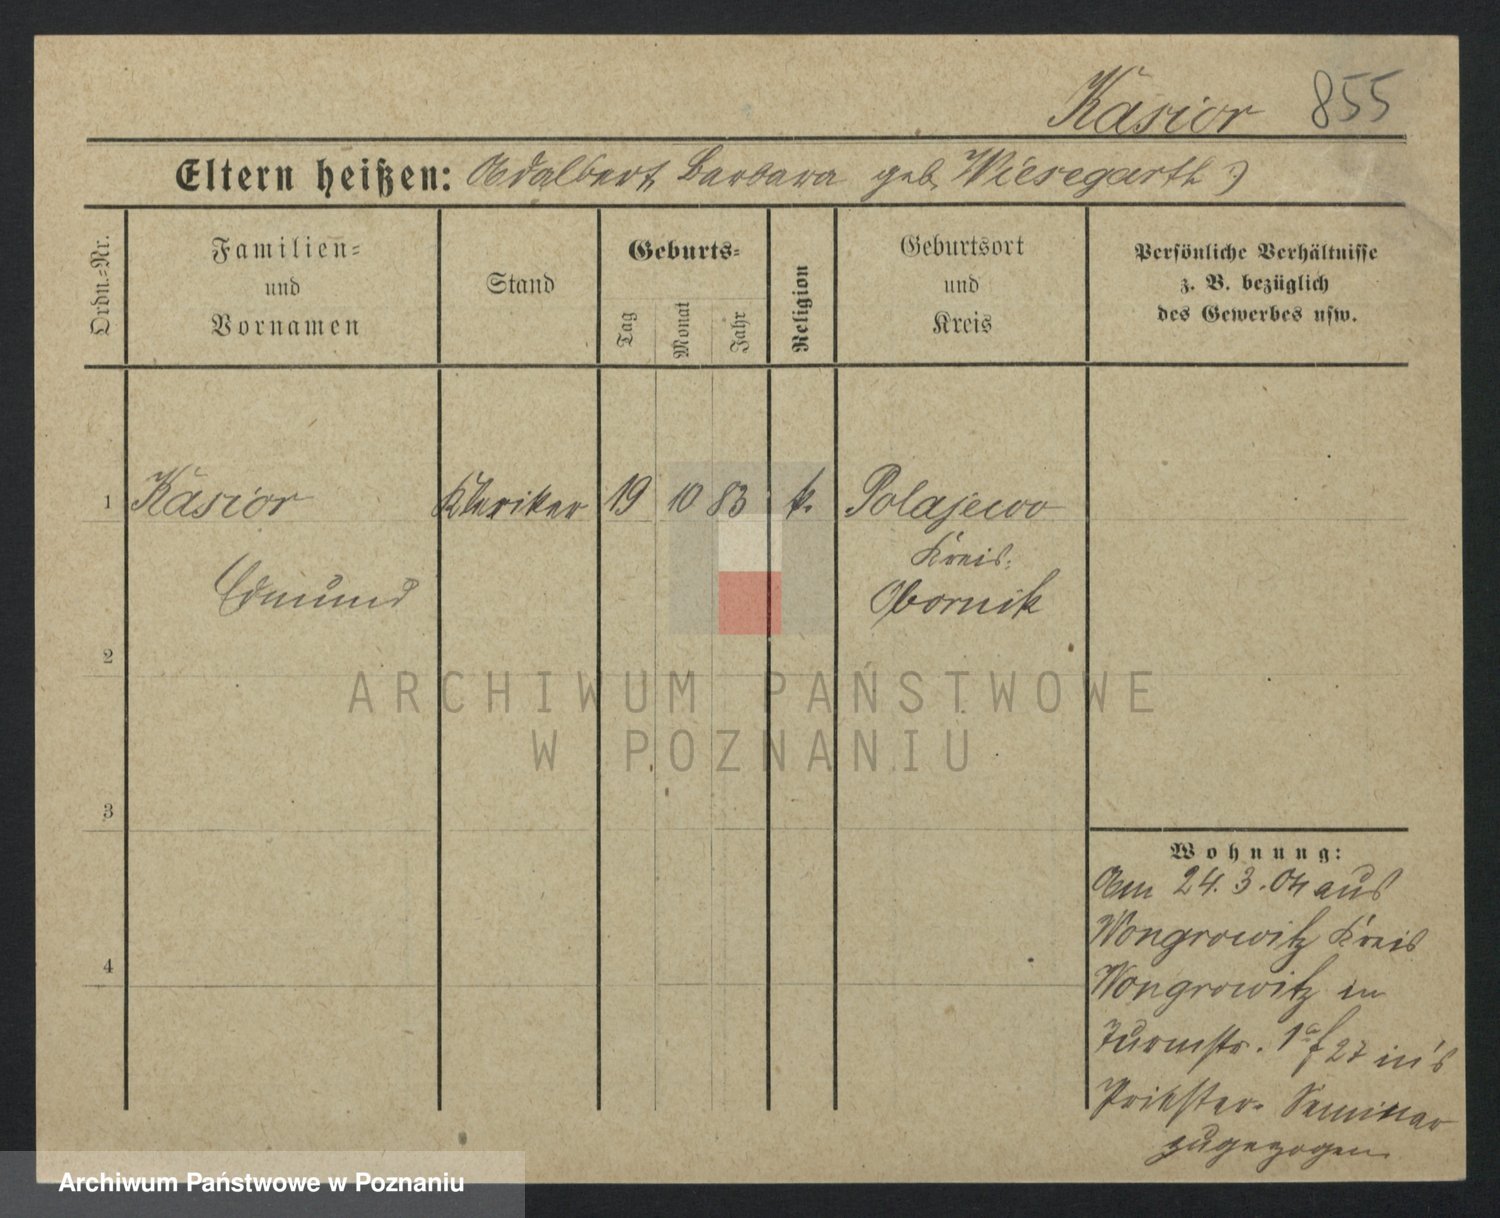 Kasior 855
Eltern heißen: Adalbert, Barbara geb. Wiesegarth
Ordn.-Nr.
Familien-
und
Vornamen
Stand
Geburts-
Tag
Monat
Jahr
Religion
Geburtsort
und
Kreis
Persönliche Verhältnisse
z. B. bezüglich
des Gewerbes usw.
1 Kasior Kleriker 19 10 83 k. Polajewo
Kreis
Edmund Obornik
2
3
4
Wohnung:
Am 24.3.04 aus
Wongrowitz Kreis
Wongrowitz in
Turmstr. 27 in's
Priester-Seminar
zugezogen.
ARCHIWUM PAŃSTWOWE
W POZNANIU
Archiwum Państwowe w Poznaniu